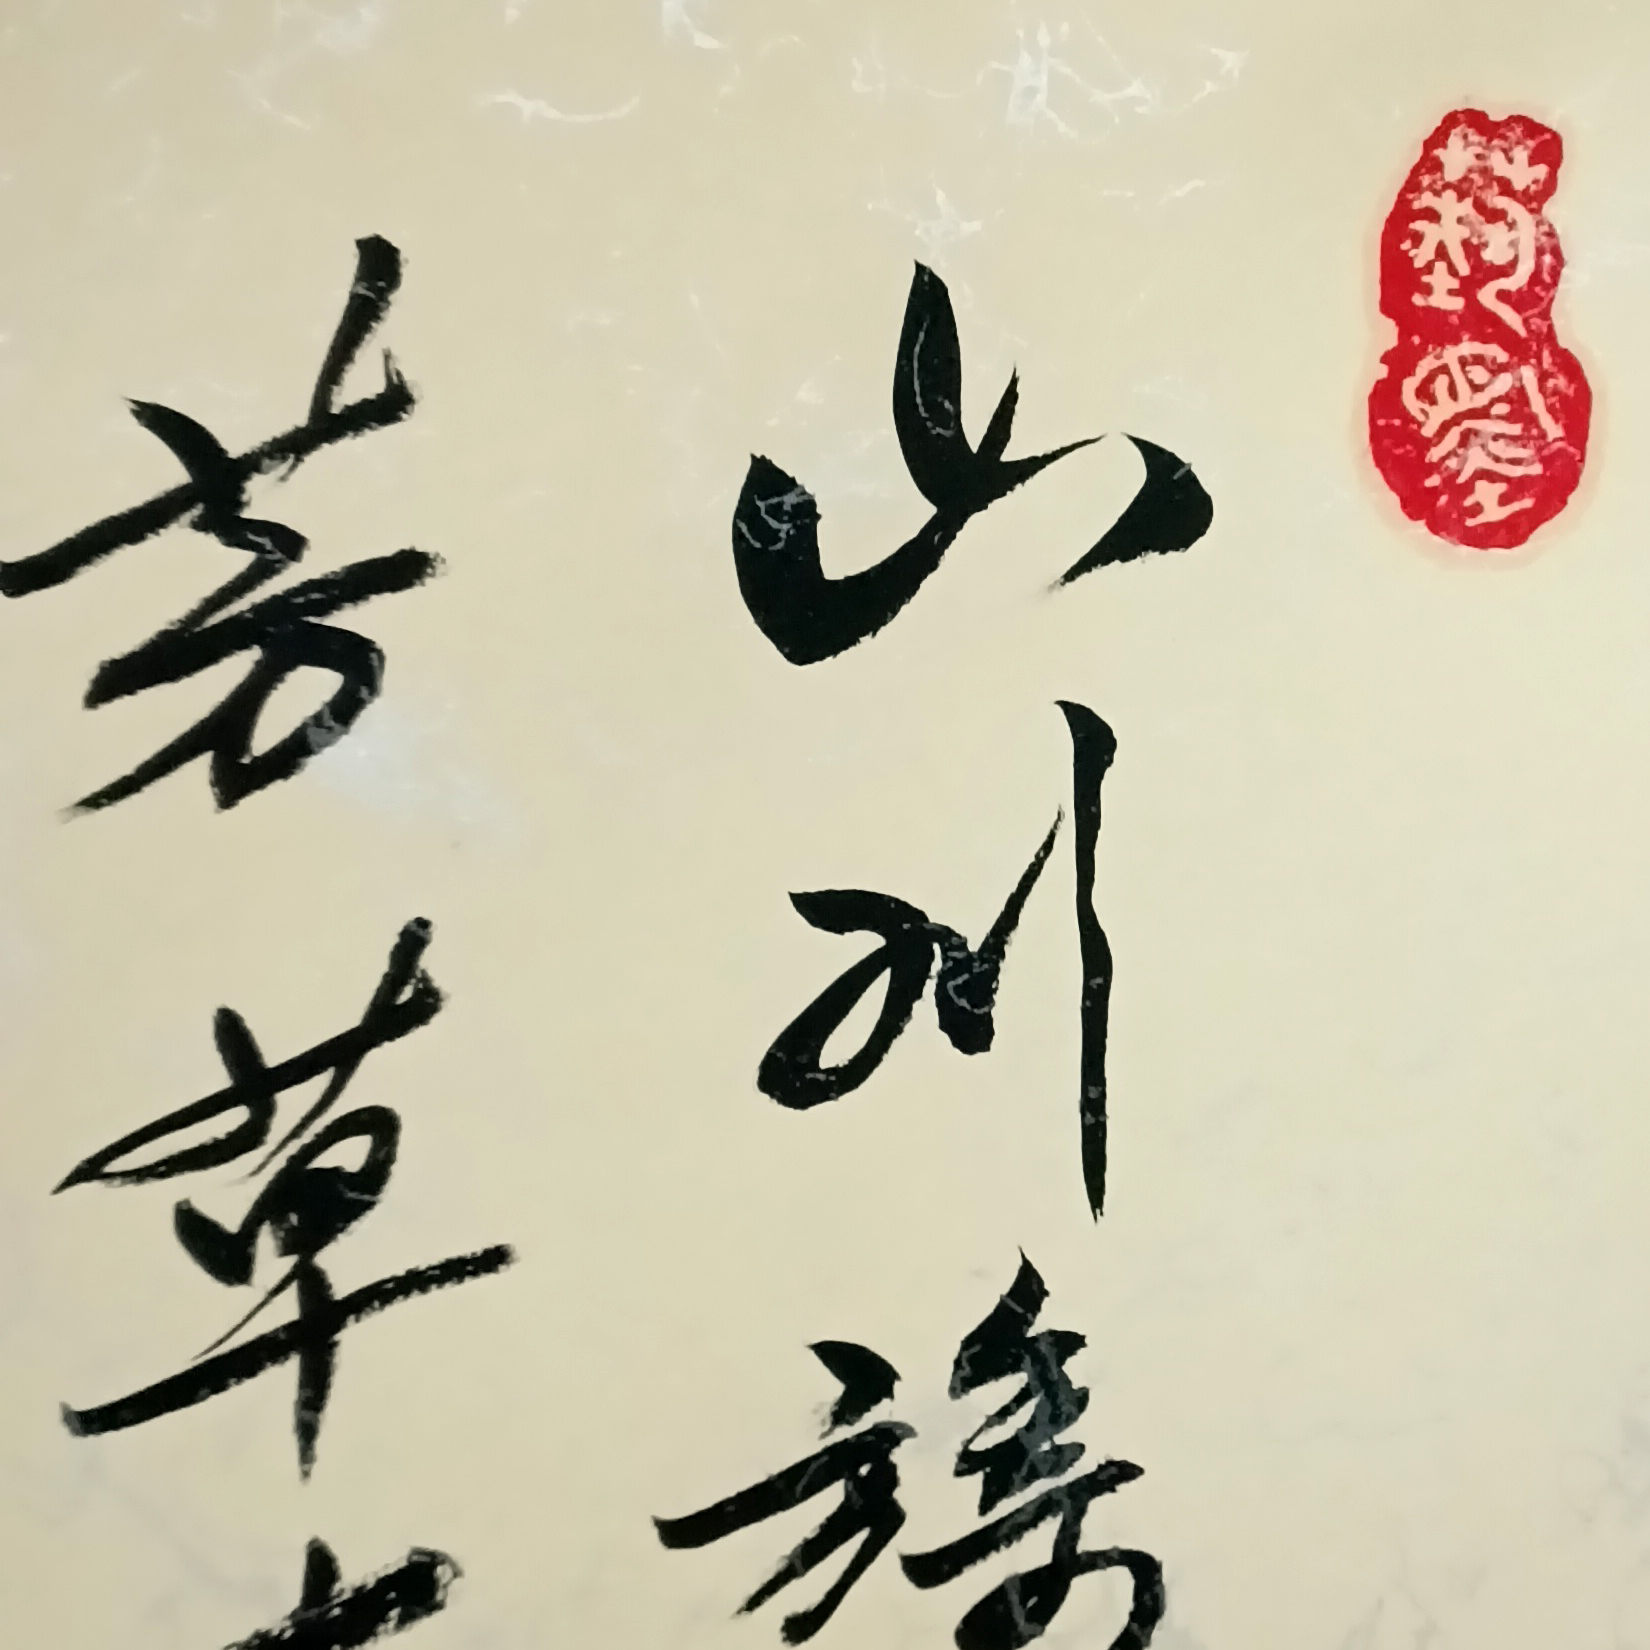 山川旖
芳草